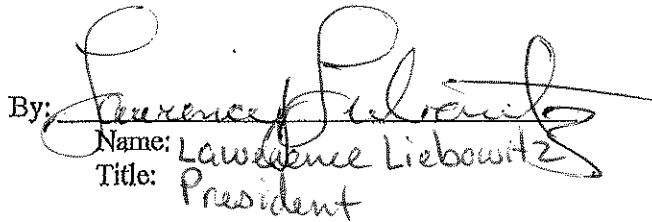 By: Lawrence Liebowitz
Name: Lawerence Liebowitz
Title: President